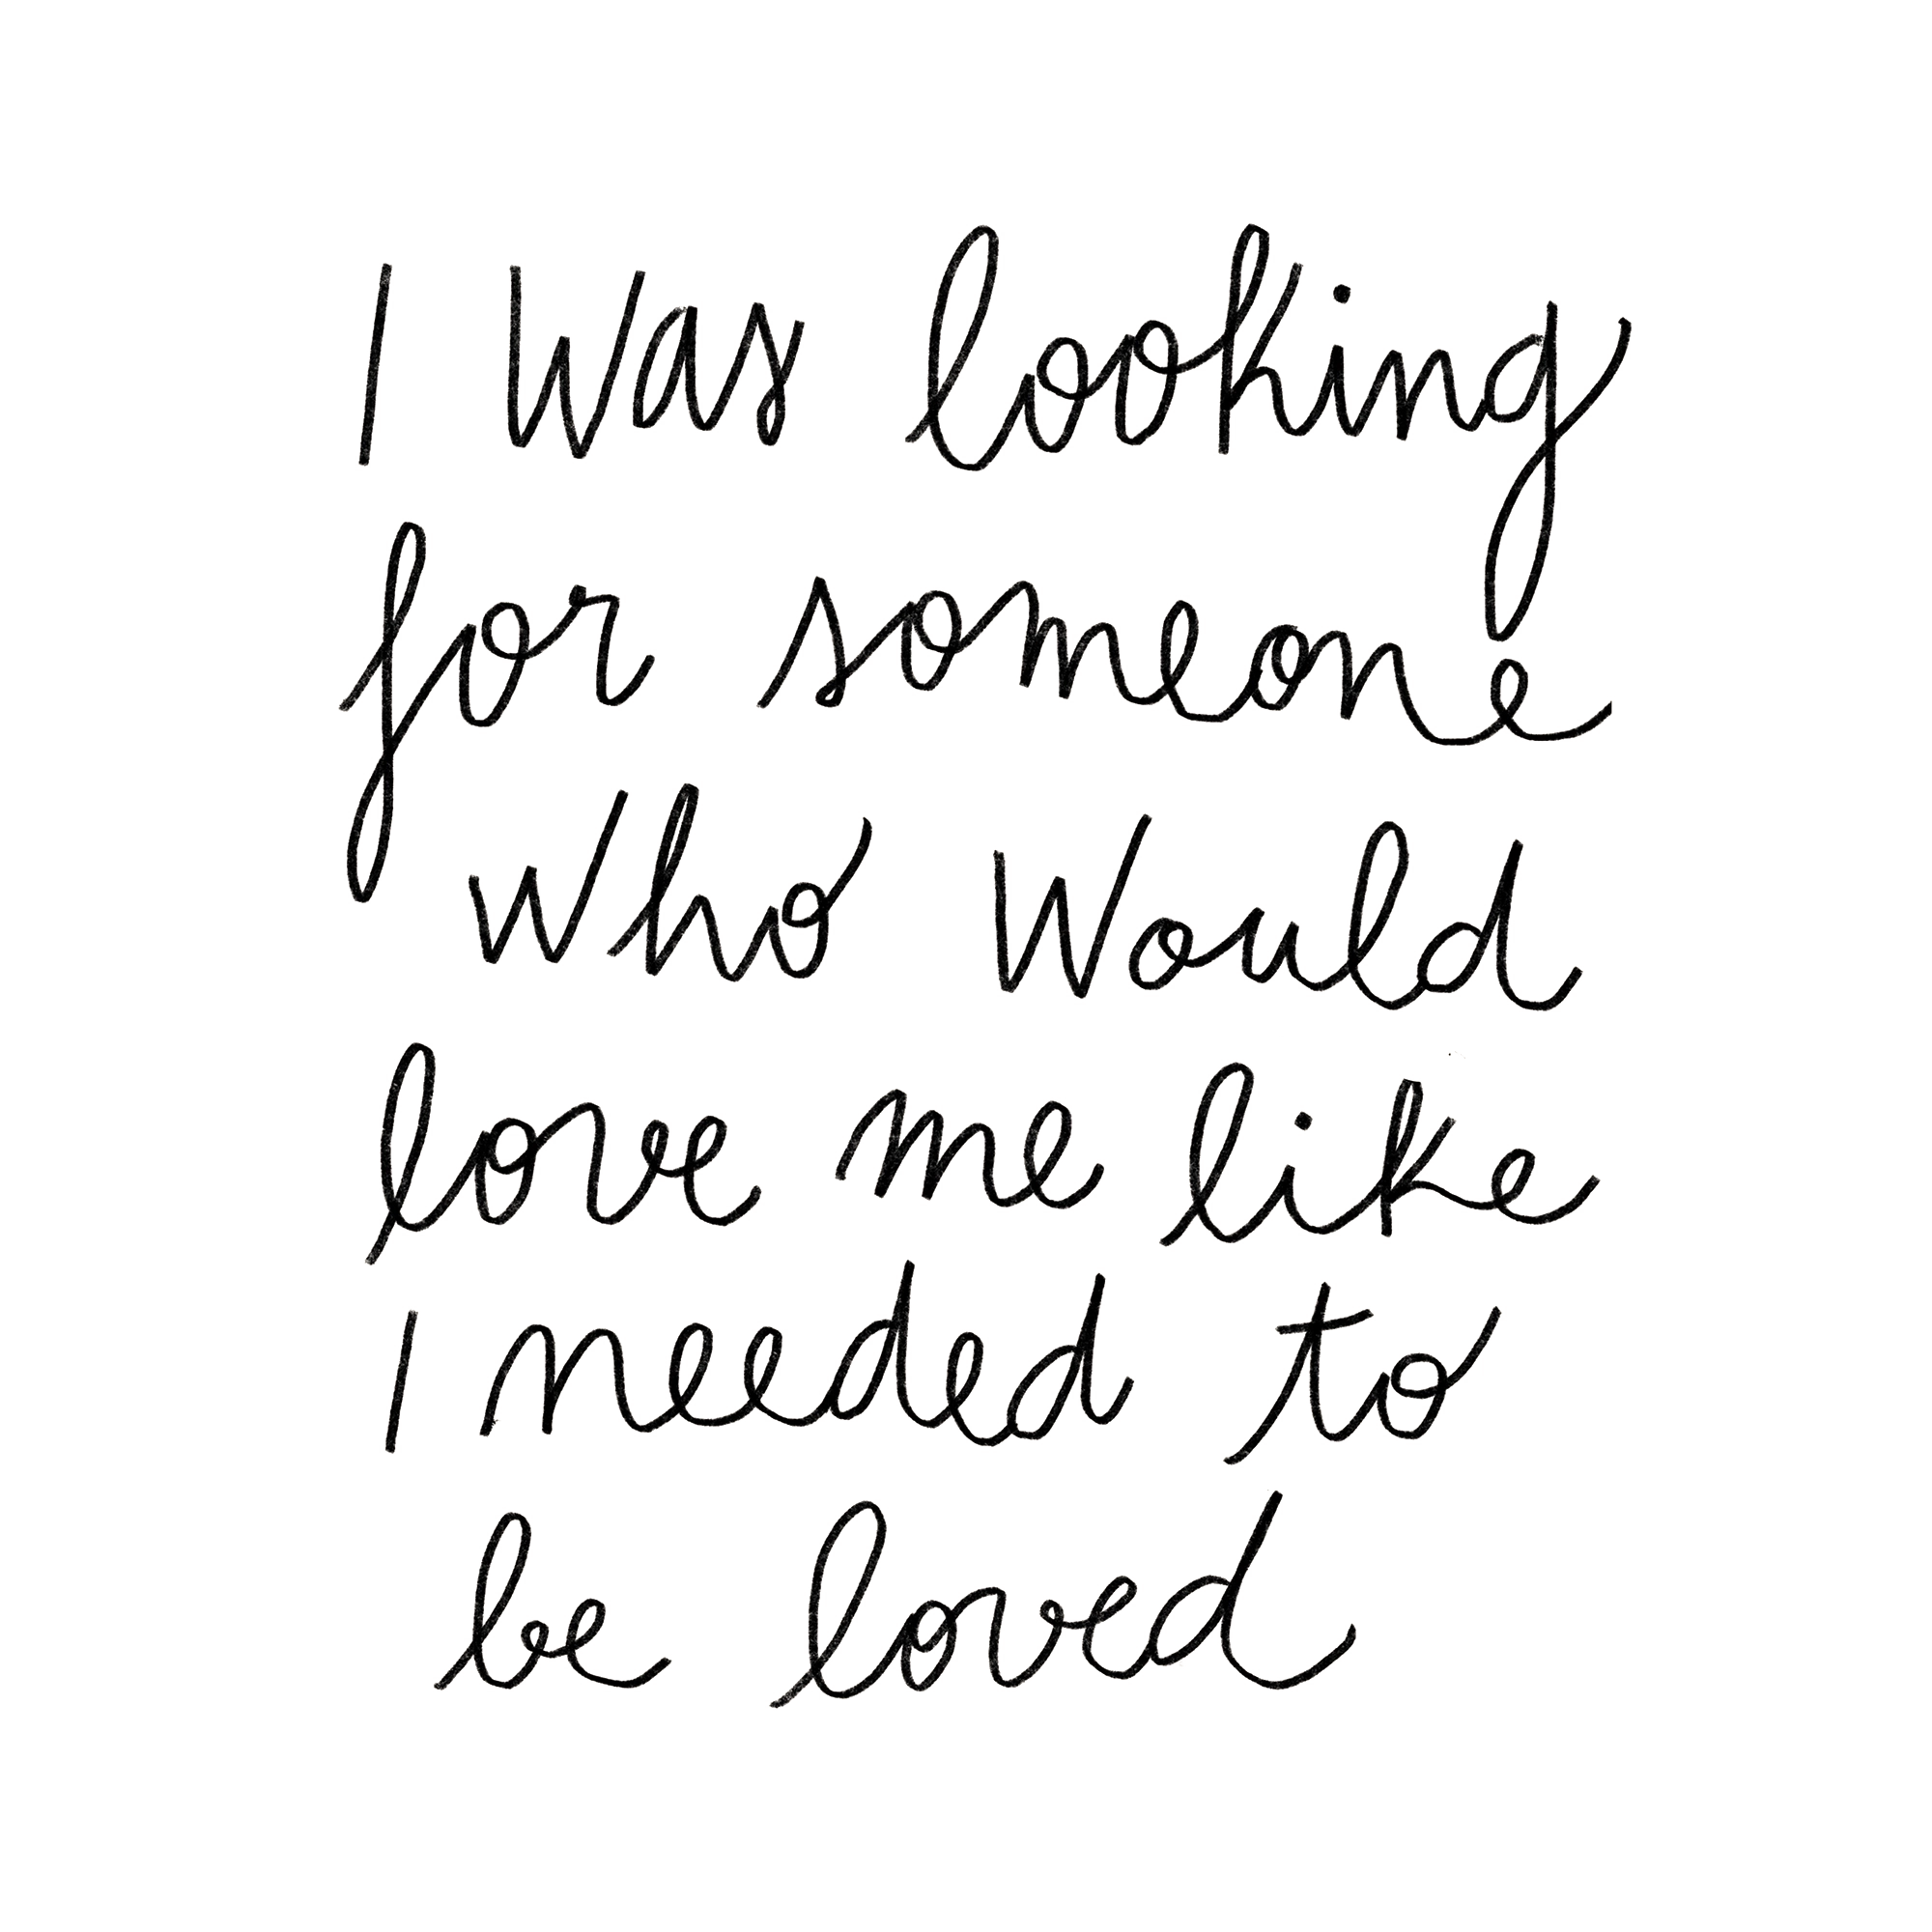 I was looking
for someone
who would
love me like
I needed to
be loved